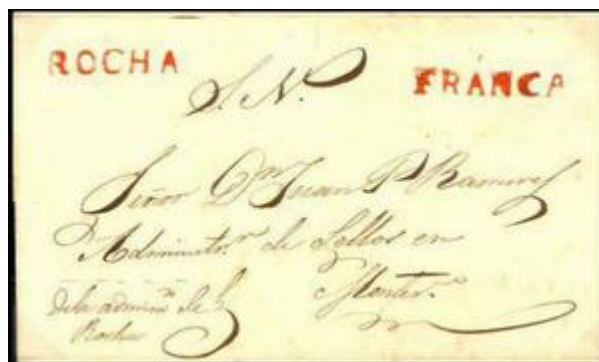 ROCHA
FRANCA
S. N.
Señor Dn Juan P Ramirez
Administr.r de Sellos en
Montev.o
de la admin.n de
Rocha